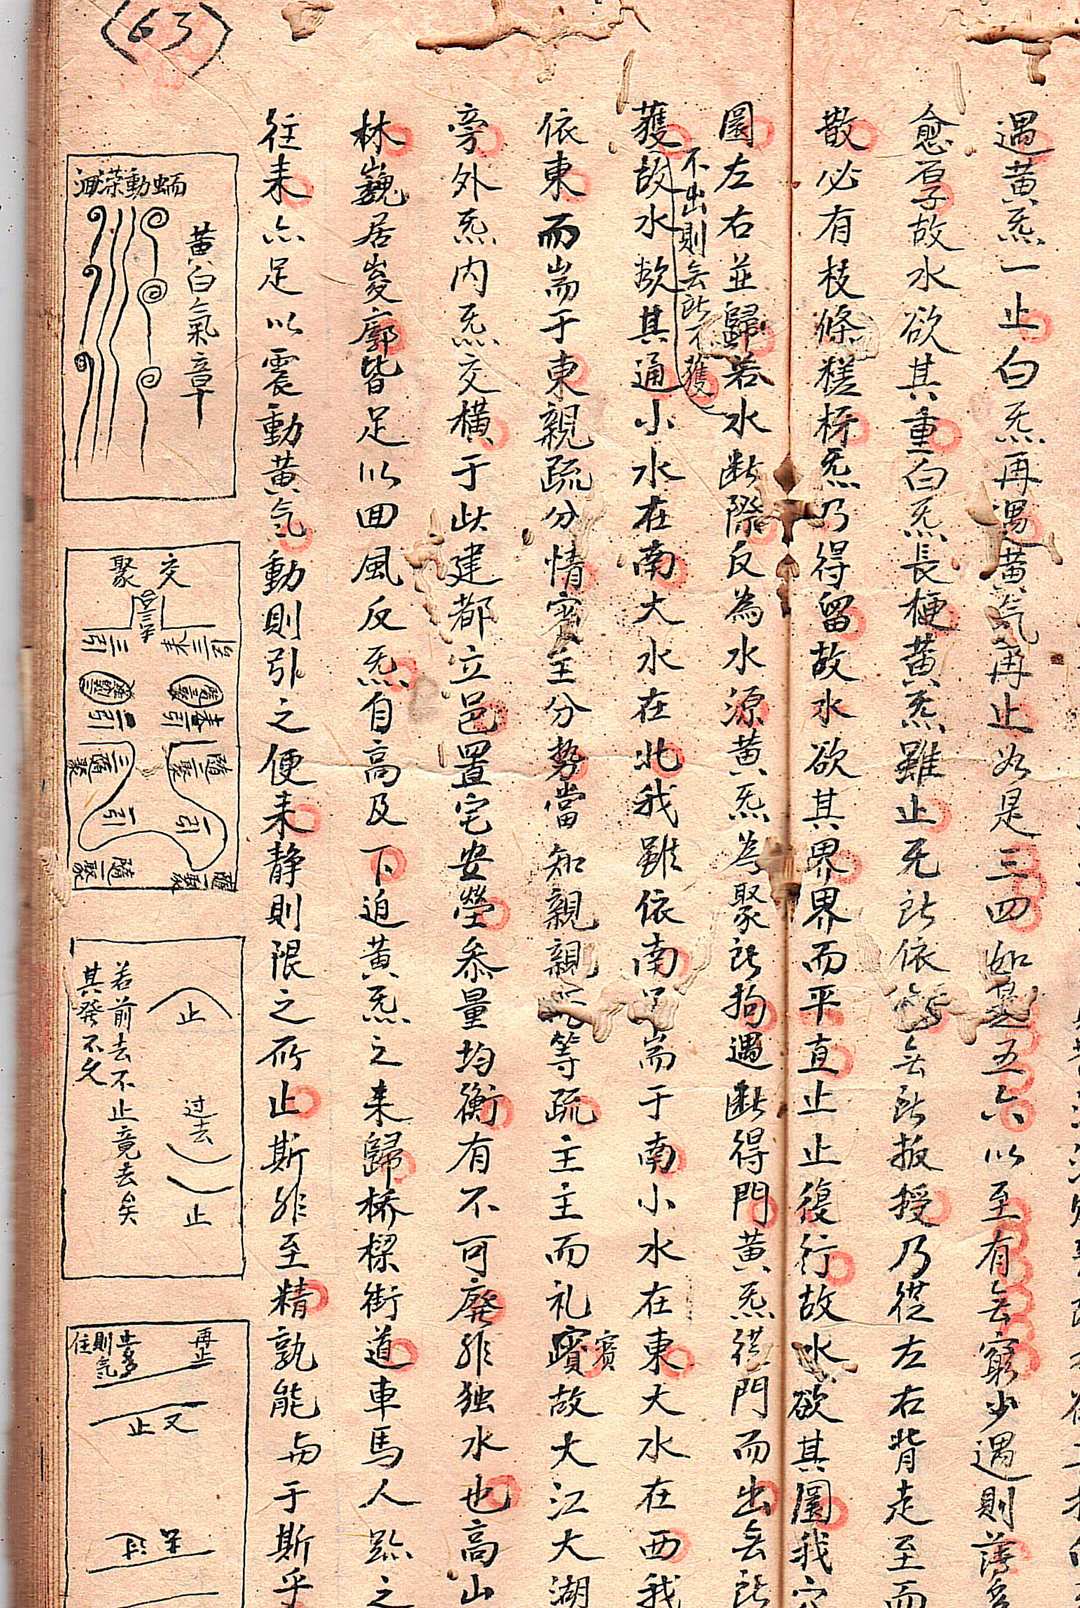 63
遇黄炁一止白炁再遇黄气再止如是三四如是五六以至有無窮少遇則薄多
愈厚故水欲其重白炁長梗黄炁雖止无所依無所扳授乃從左右背走至而
散必有枝條槎枒炁乃得留故水欲其界界而平直止止復行故水欲其圜我穴
圜左右並歸若水断際反為水源黄炁為聚所拘遇断得門黄炁從門而出無所
不出則無所不獲
獲故水欲其通小水在南大水在北我雖依南而耑于南小水在東大水在西我
依東而耑于東親疏分情賓主分勢當知親親等疏主主而礼賓故大江大湖
賓
旁外炁内炁交横于此建都立邑置宅安塋叅量均衡有不可廢非独水也高山
林巍居峻廓皆足以回風反炁自高及下迫黄炁之来歸桥樑街道車馬人跡之
往来亦足以震動黄气動則引之便来静則限之所止斯非至精孰能与于斯乎
黄白氣章
蝡動
交聚
三引
二引
二引
一引
一引
隨聚
止
过去
止
若前去不止竟去矣
其發不久
再止
則气住
又止